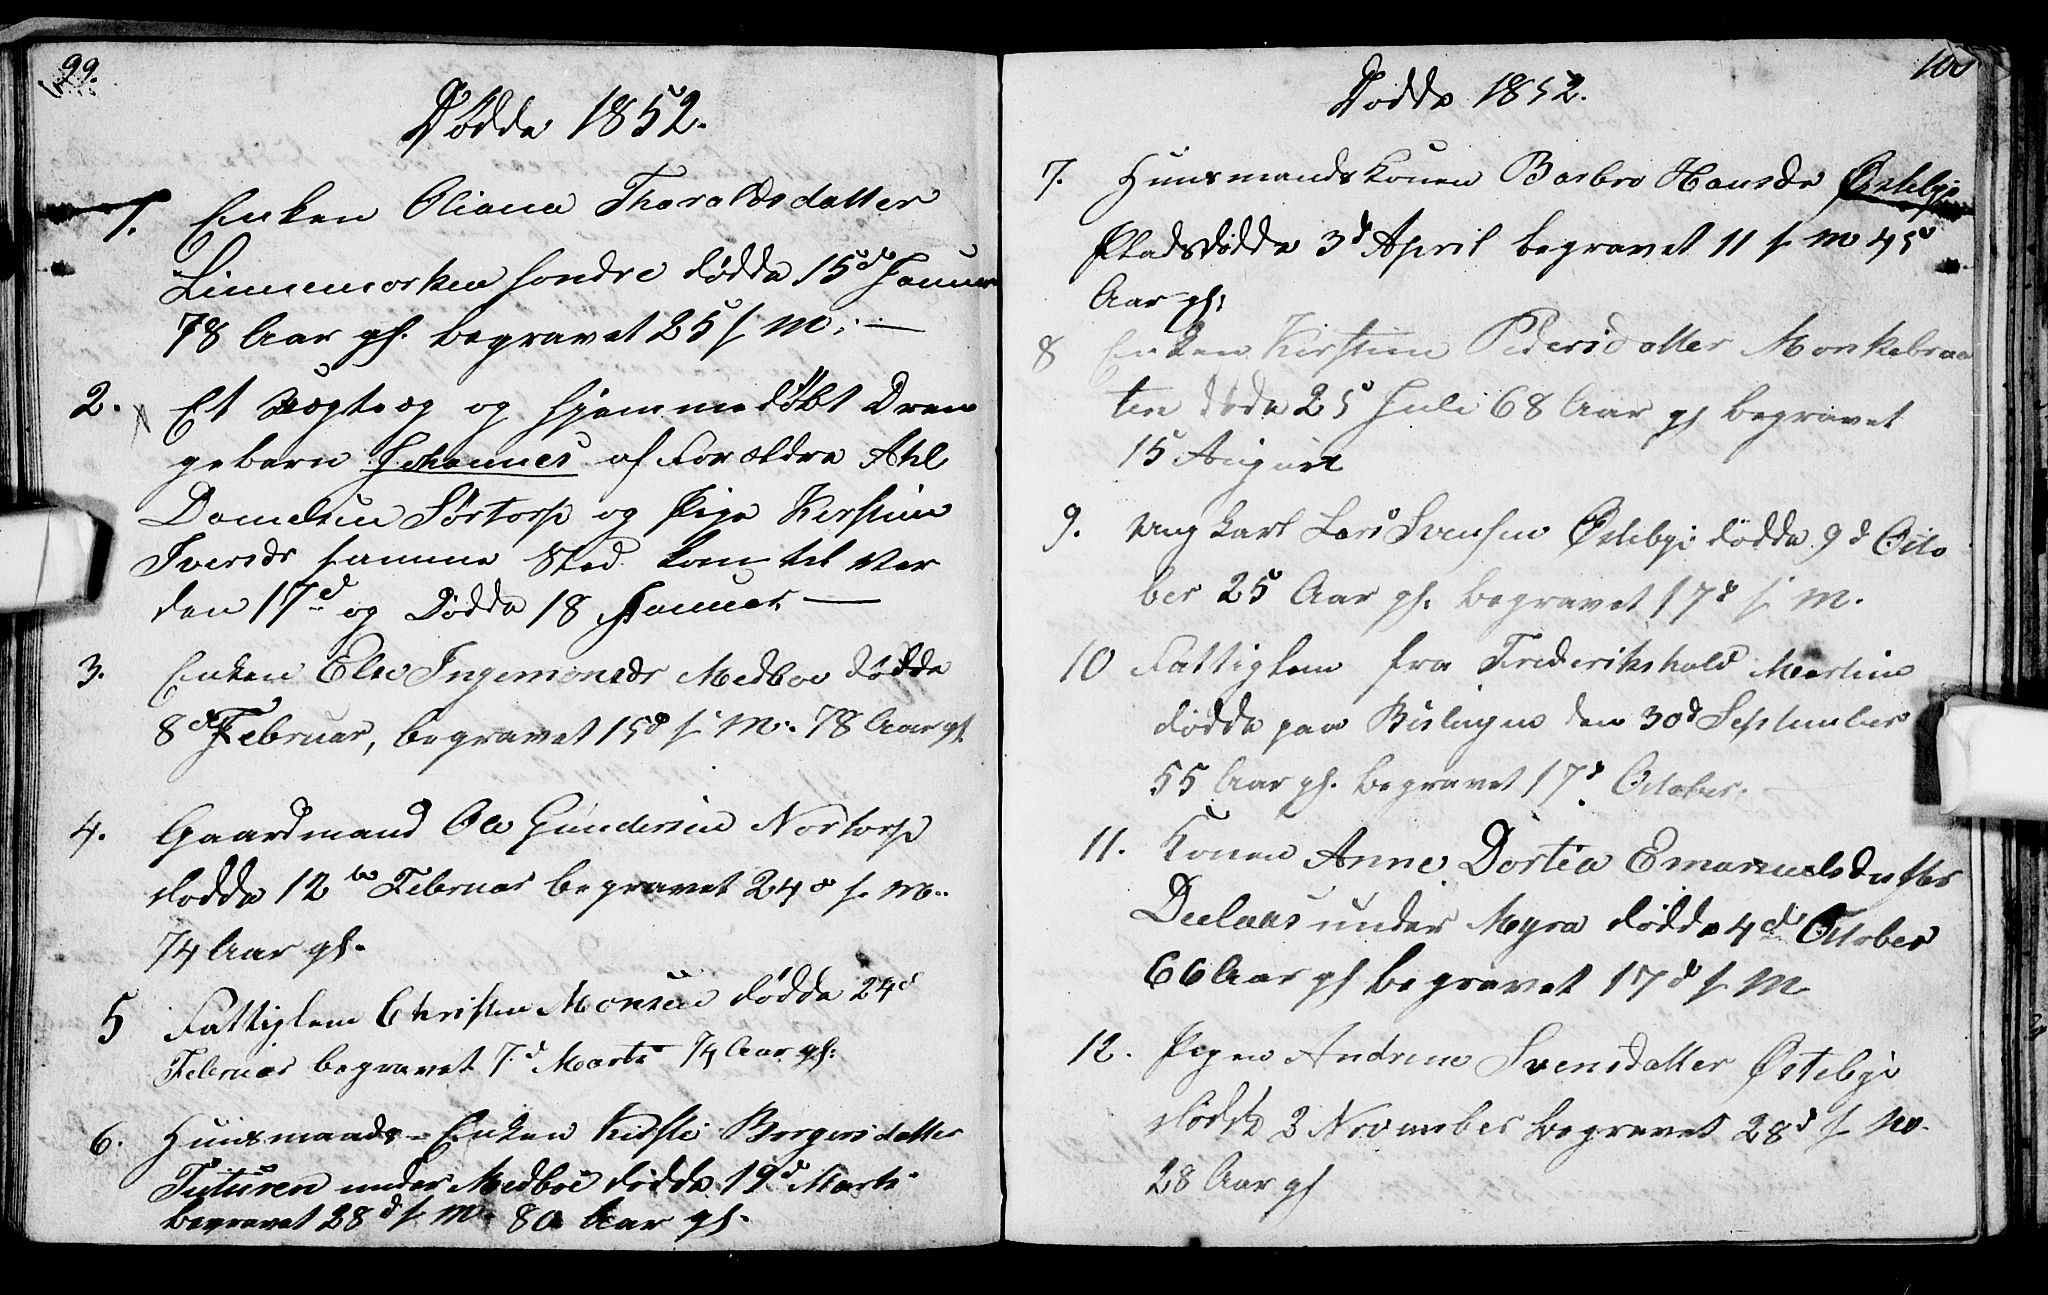 99.
Dødde 1852.
1. Enken Oliana Tharaldsdatter
Linnemorken søndre dødde 15d Januar
78 Aar gl. begravet 25 s. M. —
2. Et Uægte og hjemmedøbt Dren
gebarn Johannes af Forældre Ahl
Danielsen Sørtorp og Pige Kerstine
Iversdr samme Sted kom til Ver
den 17d og Dødde 18 Januar. —
3. Enken Else Ingemonsdr Medboe dødde
8de Februar, begravet 15d s. M. 78 Aar gl.
4. Gaardmand Ole Gundersen Nortorp
dødde 12te Februar begravet 24d s. M.
74 Aar gl.
5 Fattiglem Christen Monsen dødde 24d
Februar begravet 7d Marts 74 Aar gl.
6. Huusmands-Enken Kirsti Borgersdatter
Tuturen under Medboe dødde 19d Marts
begravet 28d s. M. 80 Aar gl.
100
Dødde 1852.
7. Huusmandskonen Barbro Hansdr Østebye
Pladsdødde 3d April begravet 11 s. M. 45
Aar gl.
8 Enken Kirstine Pedersdatter Monkebraa
ten døde 25 Juli 68 Aar gl begravet
15 August
9. Ungkarl Lars Svensen Østebye dødde 9d Octo
ber 25 Aar gl. begravet 17d s. M.
10 Fattiglem fra Frederikshald Martin
dødde paa Bislingen den 30d September
55 Aar gl. begravet 17d October.
11. Konen Anne Dortea Emanuelsdatter
Deelaas under Myra dødde 4d October
66 Aar gl begravet 17d s. M
12. Pigen Andrine Svensdatter Østebye
dødde 3 November begravet 28d s. M.
28 Aar gl